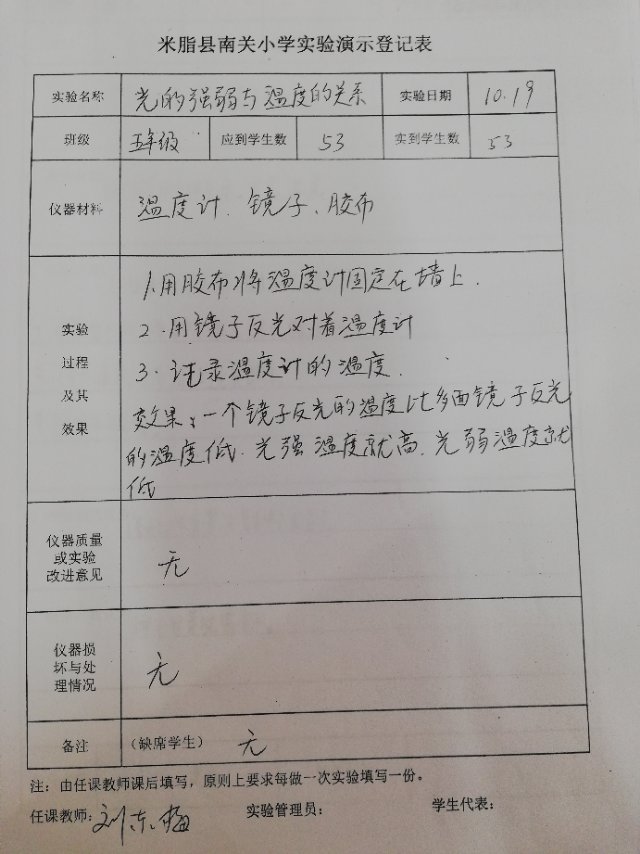 米脂县南关小学实验演示登记表
实验名称 光的强弱与温度的关系 实验日期 10.19
班级 五年级 应到学生数 53 实到学生数 53
仪器材料 温度计、镜子、胶布
实验
过程
及其
效果
1.用胶布将温度计固定在墙上.
2.用镜子反光对着温度计
3.记录温度计的温度.
效果:一个镜子反光的温度比多面镜子反光
的温度低.光强温度就高.光弱温度就
低
仪器质量
或实验
改进意见
无
仪器损
坏与处
理情况
无
备注 (缺席学生) 无
注:由任课教师课后填写,原则上要求每做一次实验填写一份。
任课教师:刘东梅 实验管理员: 学生代表: